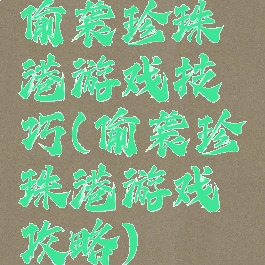 偷袭珍珠
港游戏技
巧(偷袭珍
珠港游戏
攻略)